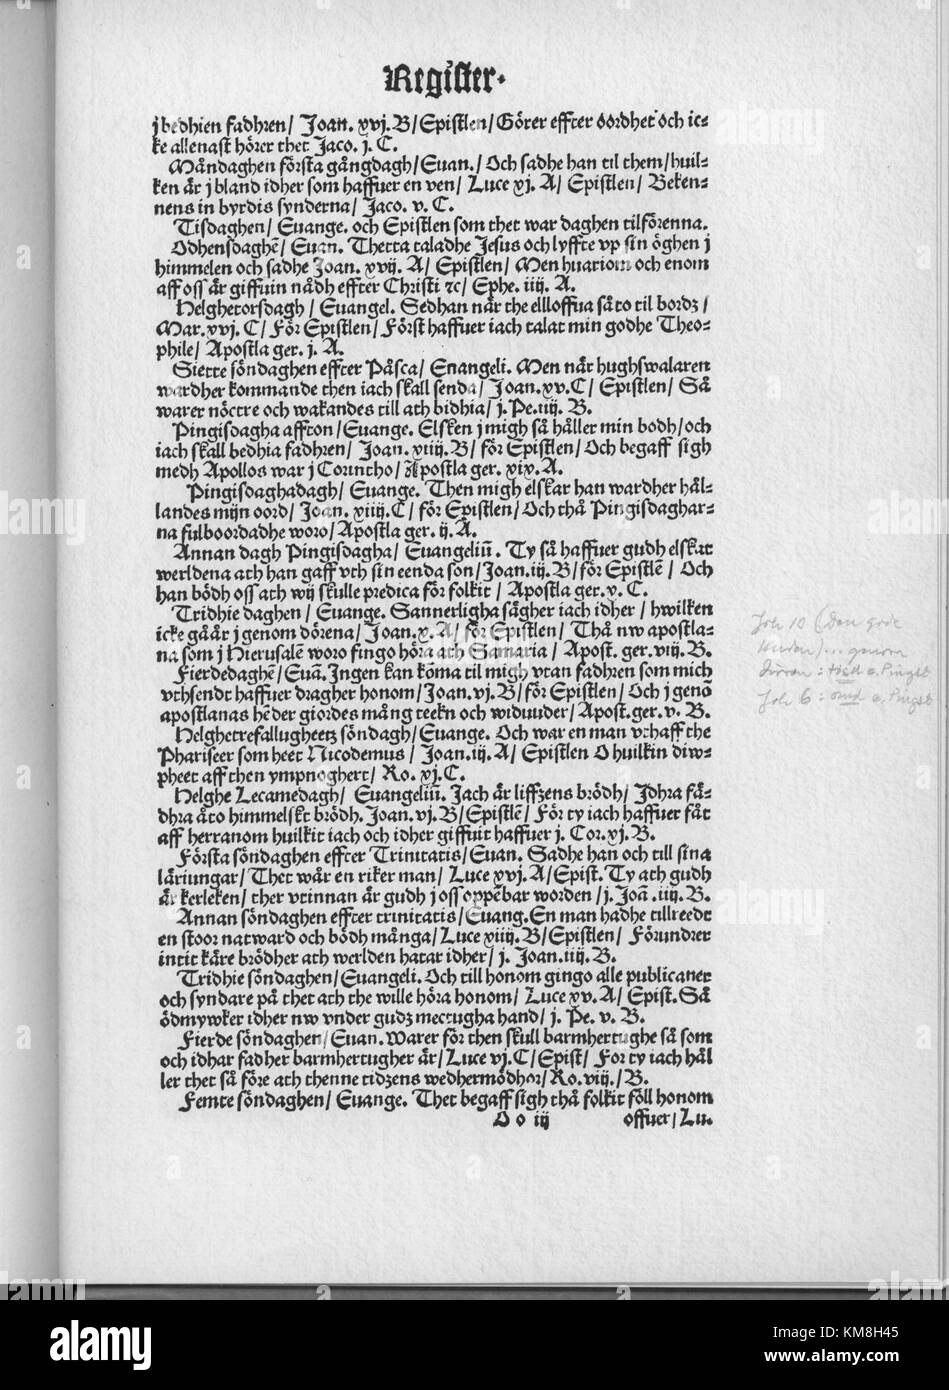 Register.
j bedhien fadhren/ Joan. xvj. B/ Epistlen/ Görer effter oordhet och ic-
ke allenast hörer thet Jaco. j. C.
Måndaghen första gångdagh/ Euan./ Och sadhe han til them/ huil-
ken är j bland idher som haffuer en ven/ Luce xj. A/ Epistlen/ Beken-
nens in byrdis synderna/ Jaco. v. C.
Tisdaghen/ Euange. och Epistlen som thet war daghen tilförenna.
Odhensdaghē/ Euan. Thetta taladhe Jesus och lyffte vp sin öghen j
himmelen och sadhe Joan. xvij. A/ Epistlen/ Men huariom och enom
aff oss är giffuin nådh effter Christi ⁊c/ Ephe. iiij. A.
Helghetorsdagh/ Euangel. Sedhan når the elloffua såto til bordz/
Mar. xvj. C/ För Epistlen/ Först haffuer iach talat min godhe Theo-
phile/ Apostla ger. j. A.
Siette söndaghen effter Påsca/ Enangeli. Men når hughswalaren
wardher kommande then iach skall senda/ Joan. xv. C/ Epistlen/ Så
warer nöctre och wakandes till ath bidhia/ j. Pe. iiij. B.
Pingisdagha affton/ Euange. Elsken j migh så håller min bodh/ och
iach skall bedhia fadhren/ Joan. xiiij. B/ för Epistlen/ Och begaff sigh
medh Apollos war j Corintho/ Apostla ger. xix. A.
Pingisdaghadagh/ Euange. Then migh elskar han wardher hål-
landes mijn oord/ Joan. xiiij. C/ för Epistlen/ Och thå Pingisdaghar-
na fulboordadhe woro/ Apostla ger. ij. A.
Annan dagh Pingisdagha/ Euangeliū. Ty så haffuer gudh elskat
werldena ath han gaff vth sin eenda son/ Joan. iij. B/ för Epistlē/ Och
han bödh oss ath wij skulle predica för folkit/ Apostla ger. v. C.
Tridhie daghen/ Euange. Sannerligha sägher iach idher/ hwilken
icke gåår j genom dörena/ Joan. x. A/ för Epistlen/ Thå nw apostla-
na som j Hierusalē woro fingo höra ath Samaria/ Apost. ger. viij. B.
Fierdedaghē/ Euā. Ingen kan kōma til migh vtan fadhren som mich
vthsendt haffuer dragher honom/ Joan. vj. B/ för Epistlen/ Och j genō
apostlanas hēder giordes mång teekn och widunder/ Apost. ger. v. B.
Helghetrefallugheetz söndagh/ Euange. Och war en man vthaff the
Phariseer som heet Nicodemus/ Joan. iij. A/ Epistlen O huilkin diw-
pheet aff then ympnoghert/ Ro. xj. C.
Helghe Lecamedagh/ Euangeliū. Jach är liffzens brödh/ Idhra fä-
dhra åto himmelskt brödh. Joan. vj. B/ Epistlē/ För ty iach haffuer fåt
aff herranom huilkit iach och idher giffuit haffuer j. Cor. xj. B.
Första söndaghen effter Trinitatis/ Euan. Sadhe han och till sina
läriungar/ Thet wår en riker man/ Luce xvj. A/ Epist. Ty ath gudh
är kerleken/ ther vtinnan är gudh j oss oppēbar worden/ j. Joā. iiij. B.
Annan söndaghen effter trinitatis/ Euang. En man hadhe tillreedt
en stoor natward och bödh många/ Luce xiiij. B/ Epistlen/ Förundrer
intit kåre brödher ath werlden hatar idher/ j. Joan. iij. B.
Tridhie söndaghen/ Euangeli. Och till honom gingo alle publicaner
och syndare på thet ath the wille höra honom/ Luce xv. A/ Epist. Så
ödmywker idher nw vnder gudz mectugha hand/ j. Pe. v. B.
Fierde söndaghen/ Euan. Warer för then skull barmhertughe så som
och idhar fadher barmhertugher är/ Luce vj. C/ Epist/ For ty iach hål
ler thet så före ath thenne tidzens wedhermödhor/ Ro. viij./ B.
Femte söndaghen/ Euange. Thet begaff sigh thå folkit föll honom
O o iij offuer/ Lu.
Joh 10 (den gode
Joh 6: a. Pingst
alamy
Image ID: KM8H45
www.alamy.com